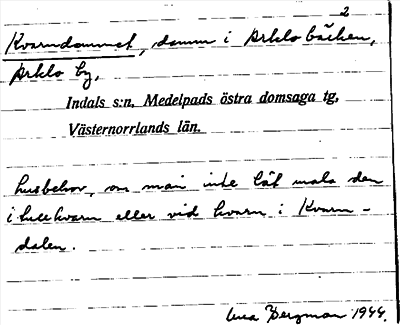 2
Kvarndammet, damm i Arklo bäcken,
Arklo by,
Indals s:n, Medelpads östra domsaga tg,
Västernorrlands län.
husbehov, om man inte lät mala den
i hvarn eller vid kvarn i Kvarn-
dalen.
Bergman 1944.